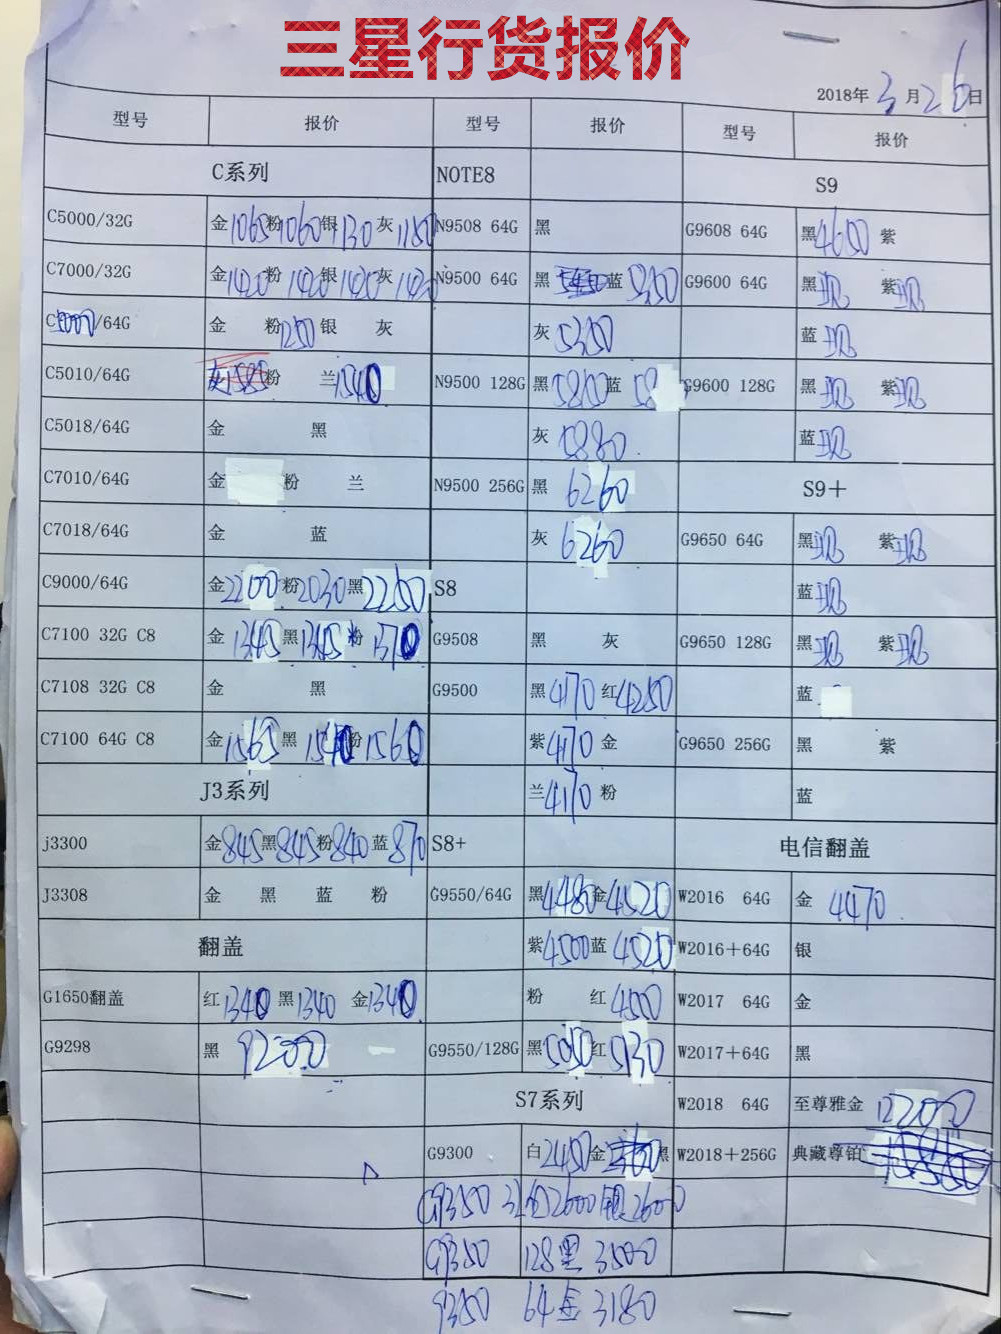 三星行货报价
2018年3月26日
型号 报价 型号 报价 型号 报价
C系列 NOTE8 S9
C5000/32G 金1065粉1060银1130灰1150 N9508 64G 黑 G9608 64G 黑4650 紫
C7000/32G 金1420粉1420银1420灰1420 N9500 64G 黑 蓝 G9600 64G 黑现 紫现
/64G 金 粉1250银 灰 灰5350 蓝现
C5010/64G 粉 兰1340 N9500 128G 黑 蓝 G9600 128G 黑现 紫现
C5018/64G 金 黑 灰5880 蓝现
C7010/64G 金 粉 兰 N9500 256G 黑 6260 S9+
C7018/64G 金 蓝 灰 6260 G9650 64G 黑现 紫现
C9000/64G 金2200粉2030黑2250 S8 蓝现
C7100 32G C8 金1345黑1345粉1370 G9508 黑 灰 G9650 128G 黑现 紫现
C7108 32G C8 金 黑 G9500 黑4170红4250 蓝
C7100 64G C8 金1565黑 粉1560 紫4170金 G9650 256G 黑 紫
J3系列 兰4170粉 蓝
j3300 金845黑845粉840蓝870 S8+ 电信翻盖
J3308 金 黑 蓝 粉 G9550/64G 黑4480金4520 W2016 64G 金 4470
翻盖 紫4500蓝4520 W2016+64G 银
G1650翻盖 红1340黑1340 金1340 粉 红4500 W2017 64G 金
G9298 黑 9200 G9550/128G 黑5050红5130 W2017+64G 黑
S7系列 W2018 64G 至尊雅金 12200
G9300 白2450金 黑 W2018+256G 典藏尊铂
G9350 32 2600银2600
G9350 128黑 3500
9350 64金3180